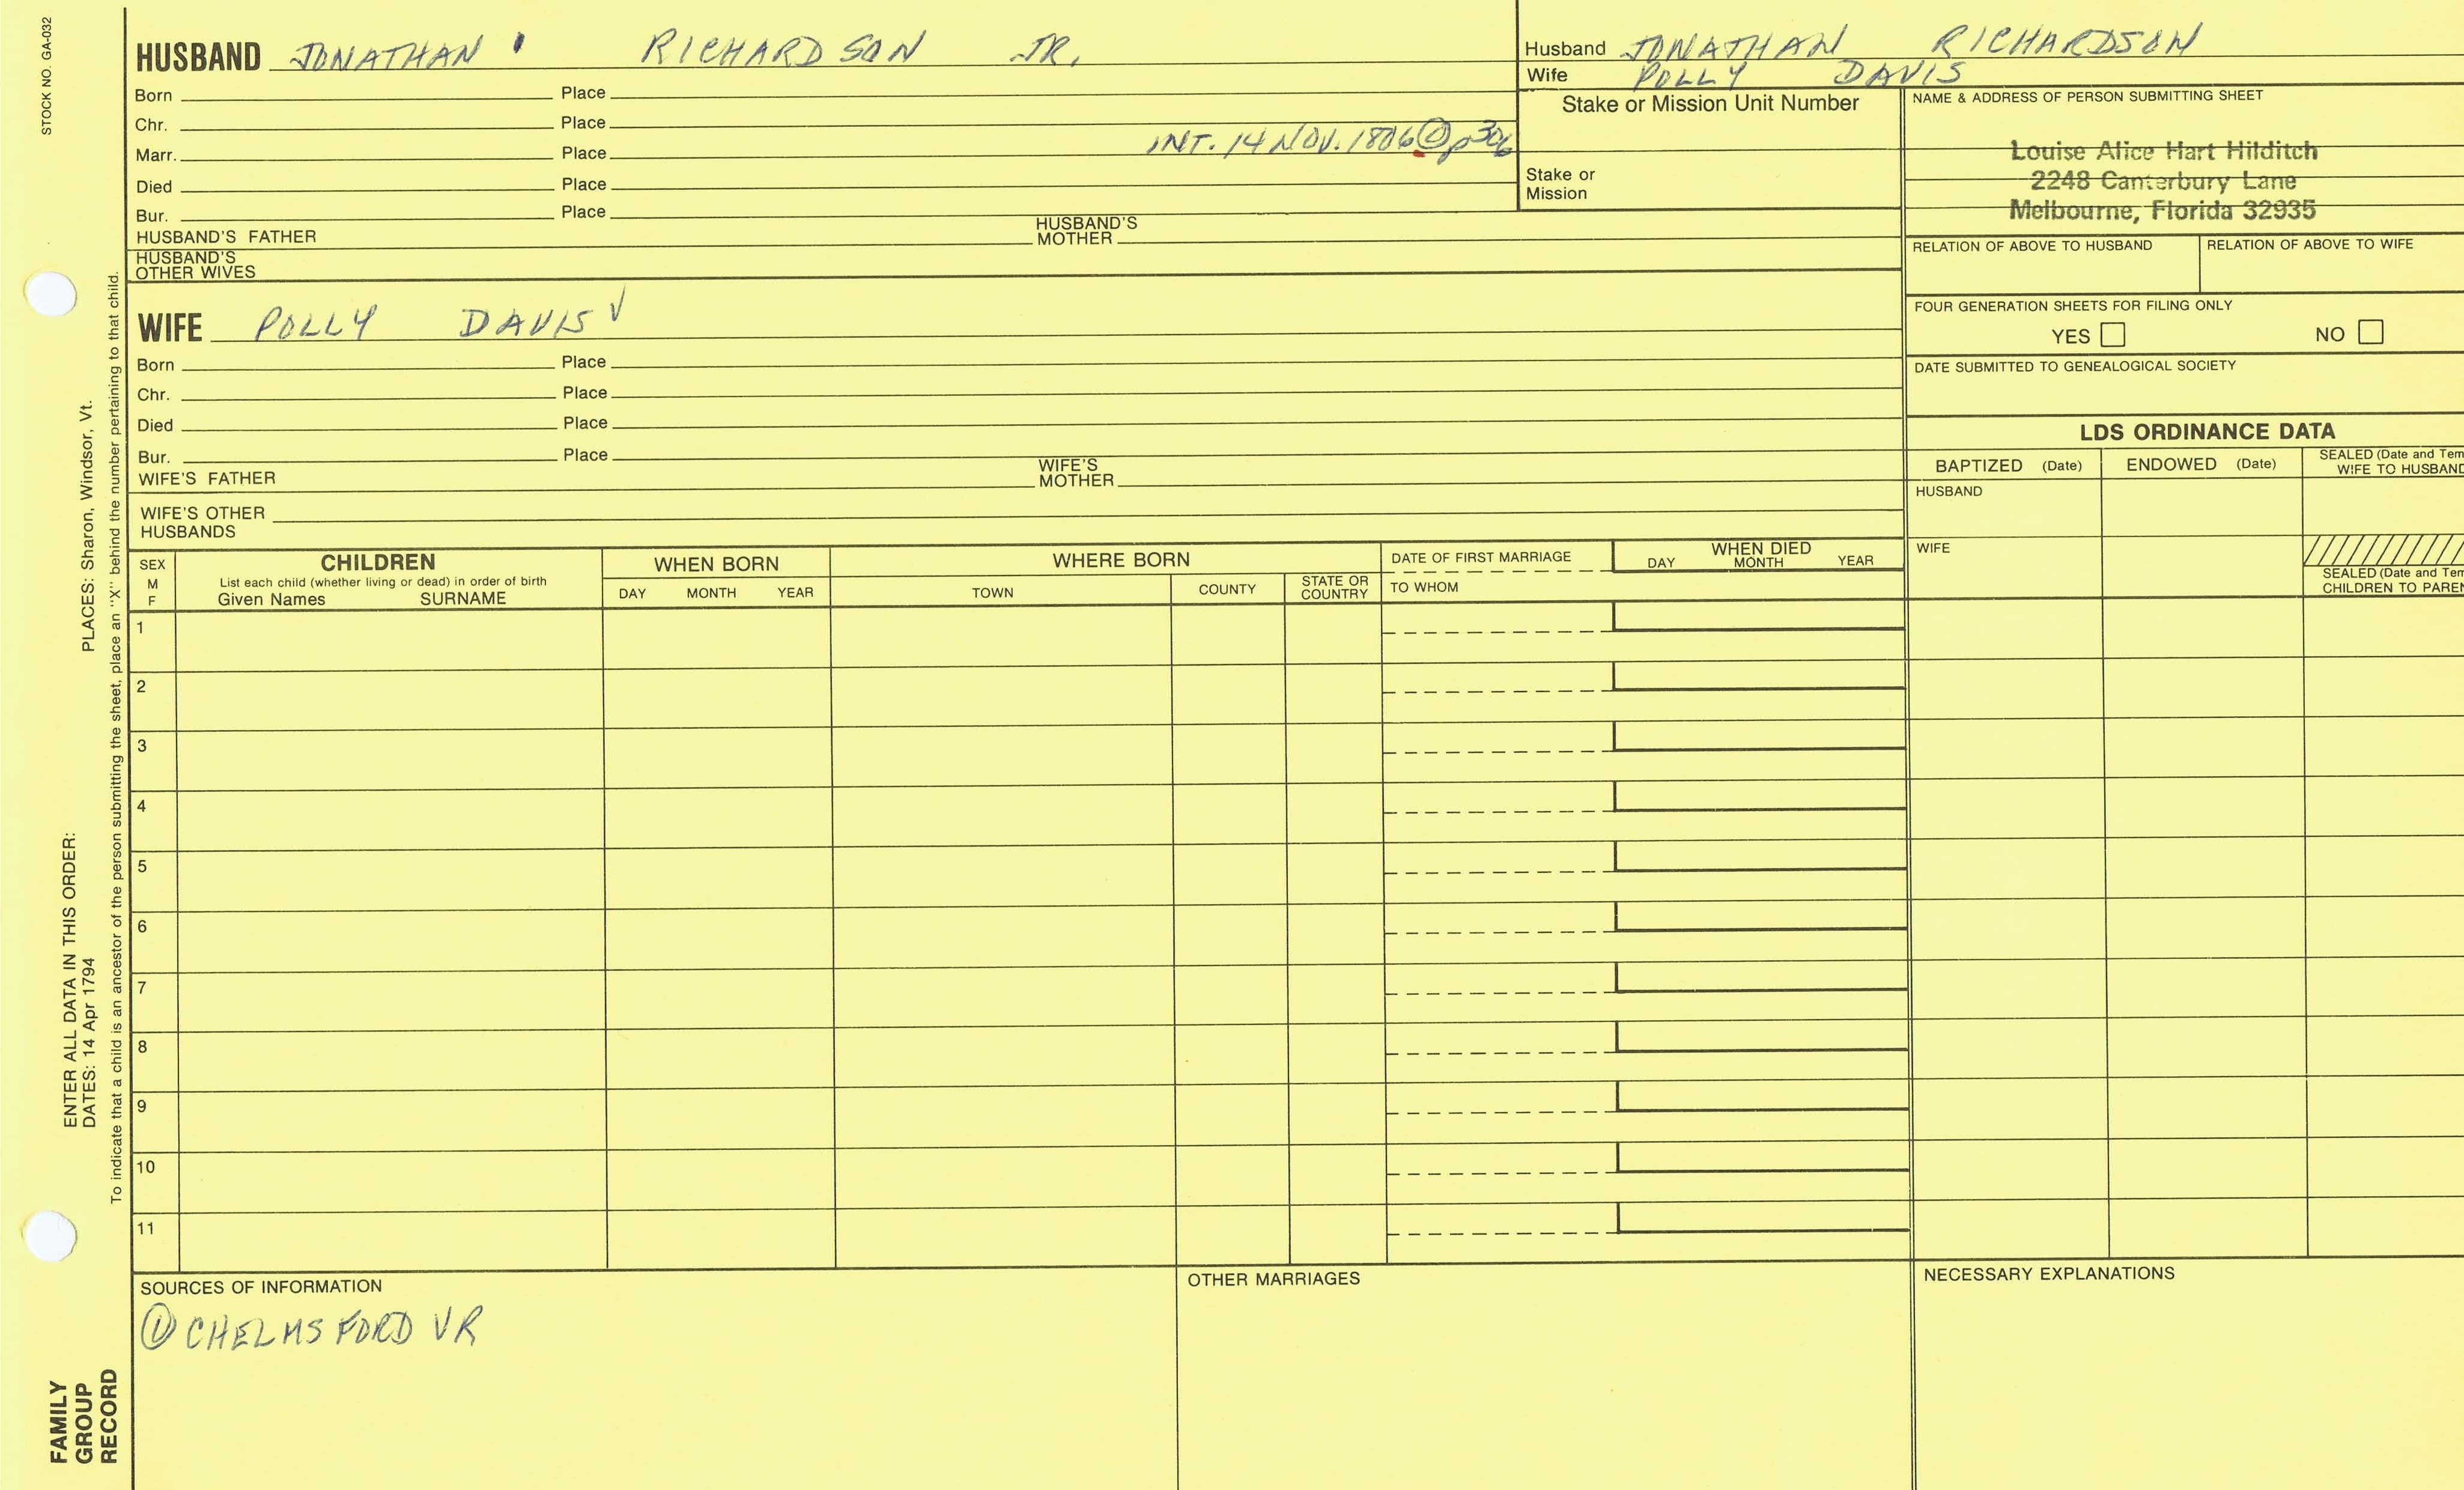 STOCK NO. GA-032
HUSBAND JONATHAN RICHARDSON JR.
Born Place
Chr. Place
Marr. Place INT. 14 NOV. 1806 ① p306
Died Place
Bur. Place
HUSBAND'S FATHER HUSBAND'S MOTHER
HUSBAND'S OTHER WIVES
WIFE POLLY DAVIS √
Born Place
Chr. Place
Died Place
Bur. Place
WIFE'S FATHER WIFE'S MOTHER
WIFE'S OTHER HUSBANDS
Husband JONATHAN RICHARDSON
Wife POLLY DAVIS
Stake or Mission Unit Number
Stake or Mission
NAME & ADDRESS OF PERSON SUBMITTING SHEET
Louise Alice Hart Hilditch
2248 Canterbury Lane
Melbourne, Florida 32935
RELATION OF ABOVE TO HUSBAND RELATION OF ABOVE TO WIFE
FOUR GENERATION SHEETS FOR FILING ONLY
YES NO
DATE SUBMITTED TO GENEALOGICAL SOCIETY
LDS ORDINANCE DATA
BAPTIZED (Date) ENDOWED (Date) SEALED (Date and Tem
WIFE TO HUSBAND
HUSBAND
WIFE
SEALED (Date and Tem
CHILDREN TO PAREN
SEX
M
F
CHILDREN
List each child (whether living or dead) in order of birth
Given Names SURNAME
WHEN BORN
DAY MONTH YEAR
WHERE BORN
TOWN COUNTY STATE OR COUNTRY
DATE OF FIRST MARRIAGE
TO WHOM
WHEN DIED
DAY MONTH YEAR
1
2
3
4
5
6
7
8
9
10
11
SOURCES OF INFORMATION
① CHELMSFORD VR
OTHER MARRIAGES
NECESSARY EXPLANATIONS
ENTER ALL DATA IN THIS ORDER:
DATES: 14 Apr 1794 PLACES: Sharon, Windsor, Vt.
To indicate that a child is an ancestor of the person submitting the sheet, place an "X" behind the number pertaining to that child.
FAMILY
GROUP
RECORD